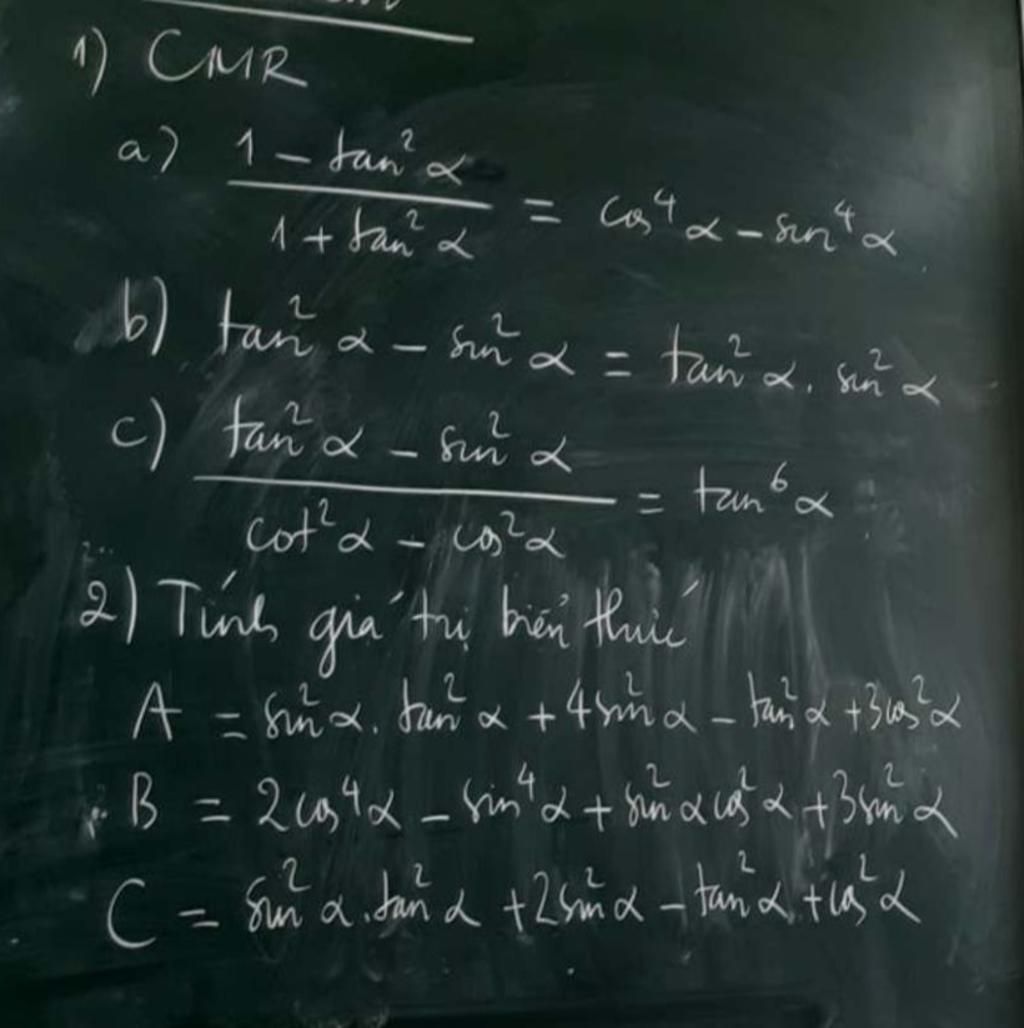 1) CMR
a) (1 - tan²α)/(1 + tan²α) = cos⁴α - sin⁴α
b) tan²α - sin²α = tan²α. sin²α
c) (tan²α - sin²α)/(cot²α - cos²α) = tan⁶α
2) Tính giá trị biển thức
A = sin²α. tan²α + 4sin²α - tan²α + 3cos²α
B = 2cos⁴α - sin⁴α + sin²αcos²α + 3sin²α
C = sin²α.tan²α + 2sin²α - tan²α + cos²α